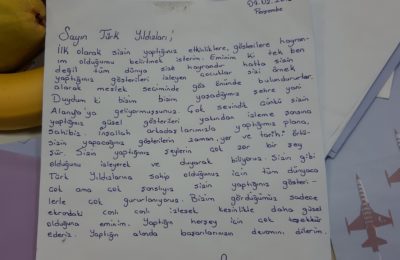 07.02.
Perşembe
Sayın Türk Yıldızları;
İlk olarak sizin yaptığınız etkinliklere, gösterilere hayran-
ım olduğumu belirtmek isterim. Eminim ki tek ben
değil tüm dünya size hayrandır hatta sizin
yaptığınız gösterileri izleyen çocuklar sizi örnek
alarak meslek seçiminde göz önünde bulundururlar.
Duydum ki bizim bizim yaşadığımız şehre yani
Alanya'ya geliyormuşsunuz. Çok sevindik çünkü sizin
yaptığınız güsel gösterileri yakından izleme şansına
Sahibiz. İnşallah arkadaşlarımızla yaptığımız plana,
sizin yapacağınız gösterilerin zaman, yer ve tarihi
Sür. Sizin yaptığınız şeylerin çok zor bir şey
olduğunu izleyerek ve duyarak biliyoruz. Sizin gibi
Türk Yıldızlarına sahip olduğunuz için tüm dünyaca
çok ama çok şanslıyız sizin yaptığınız gösteri-
lerle çok gururlanıyoruz. Bizim gördüğümüz sadece
ekrandaki canlı canlı izlesek kesinlikle daha güsel
olduğuna eminim. Yaptığın herşey için çok teşekkür
ederiz. Yaptığın alanda başarılarınızın devamını dilerim.